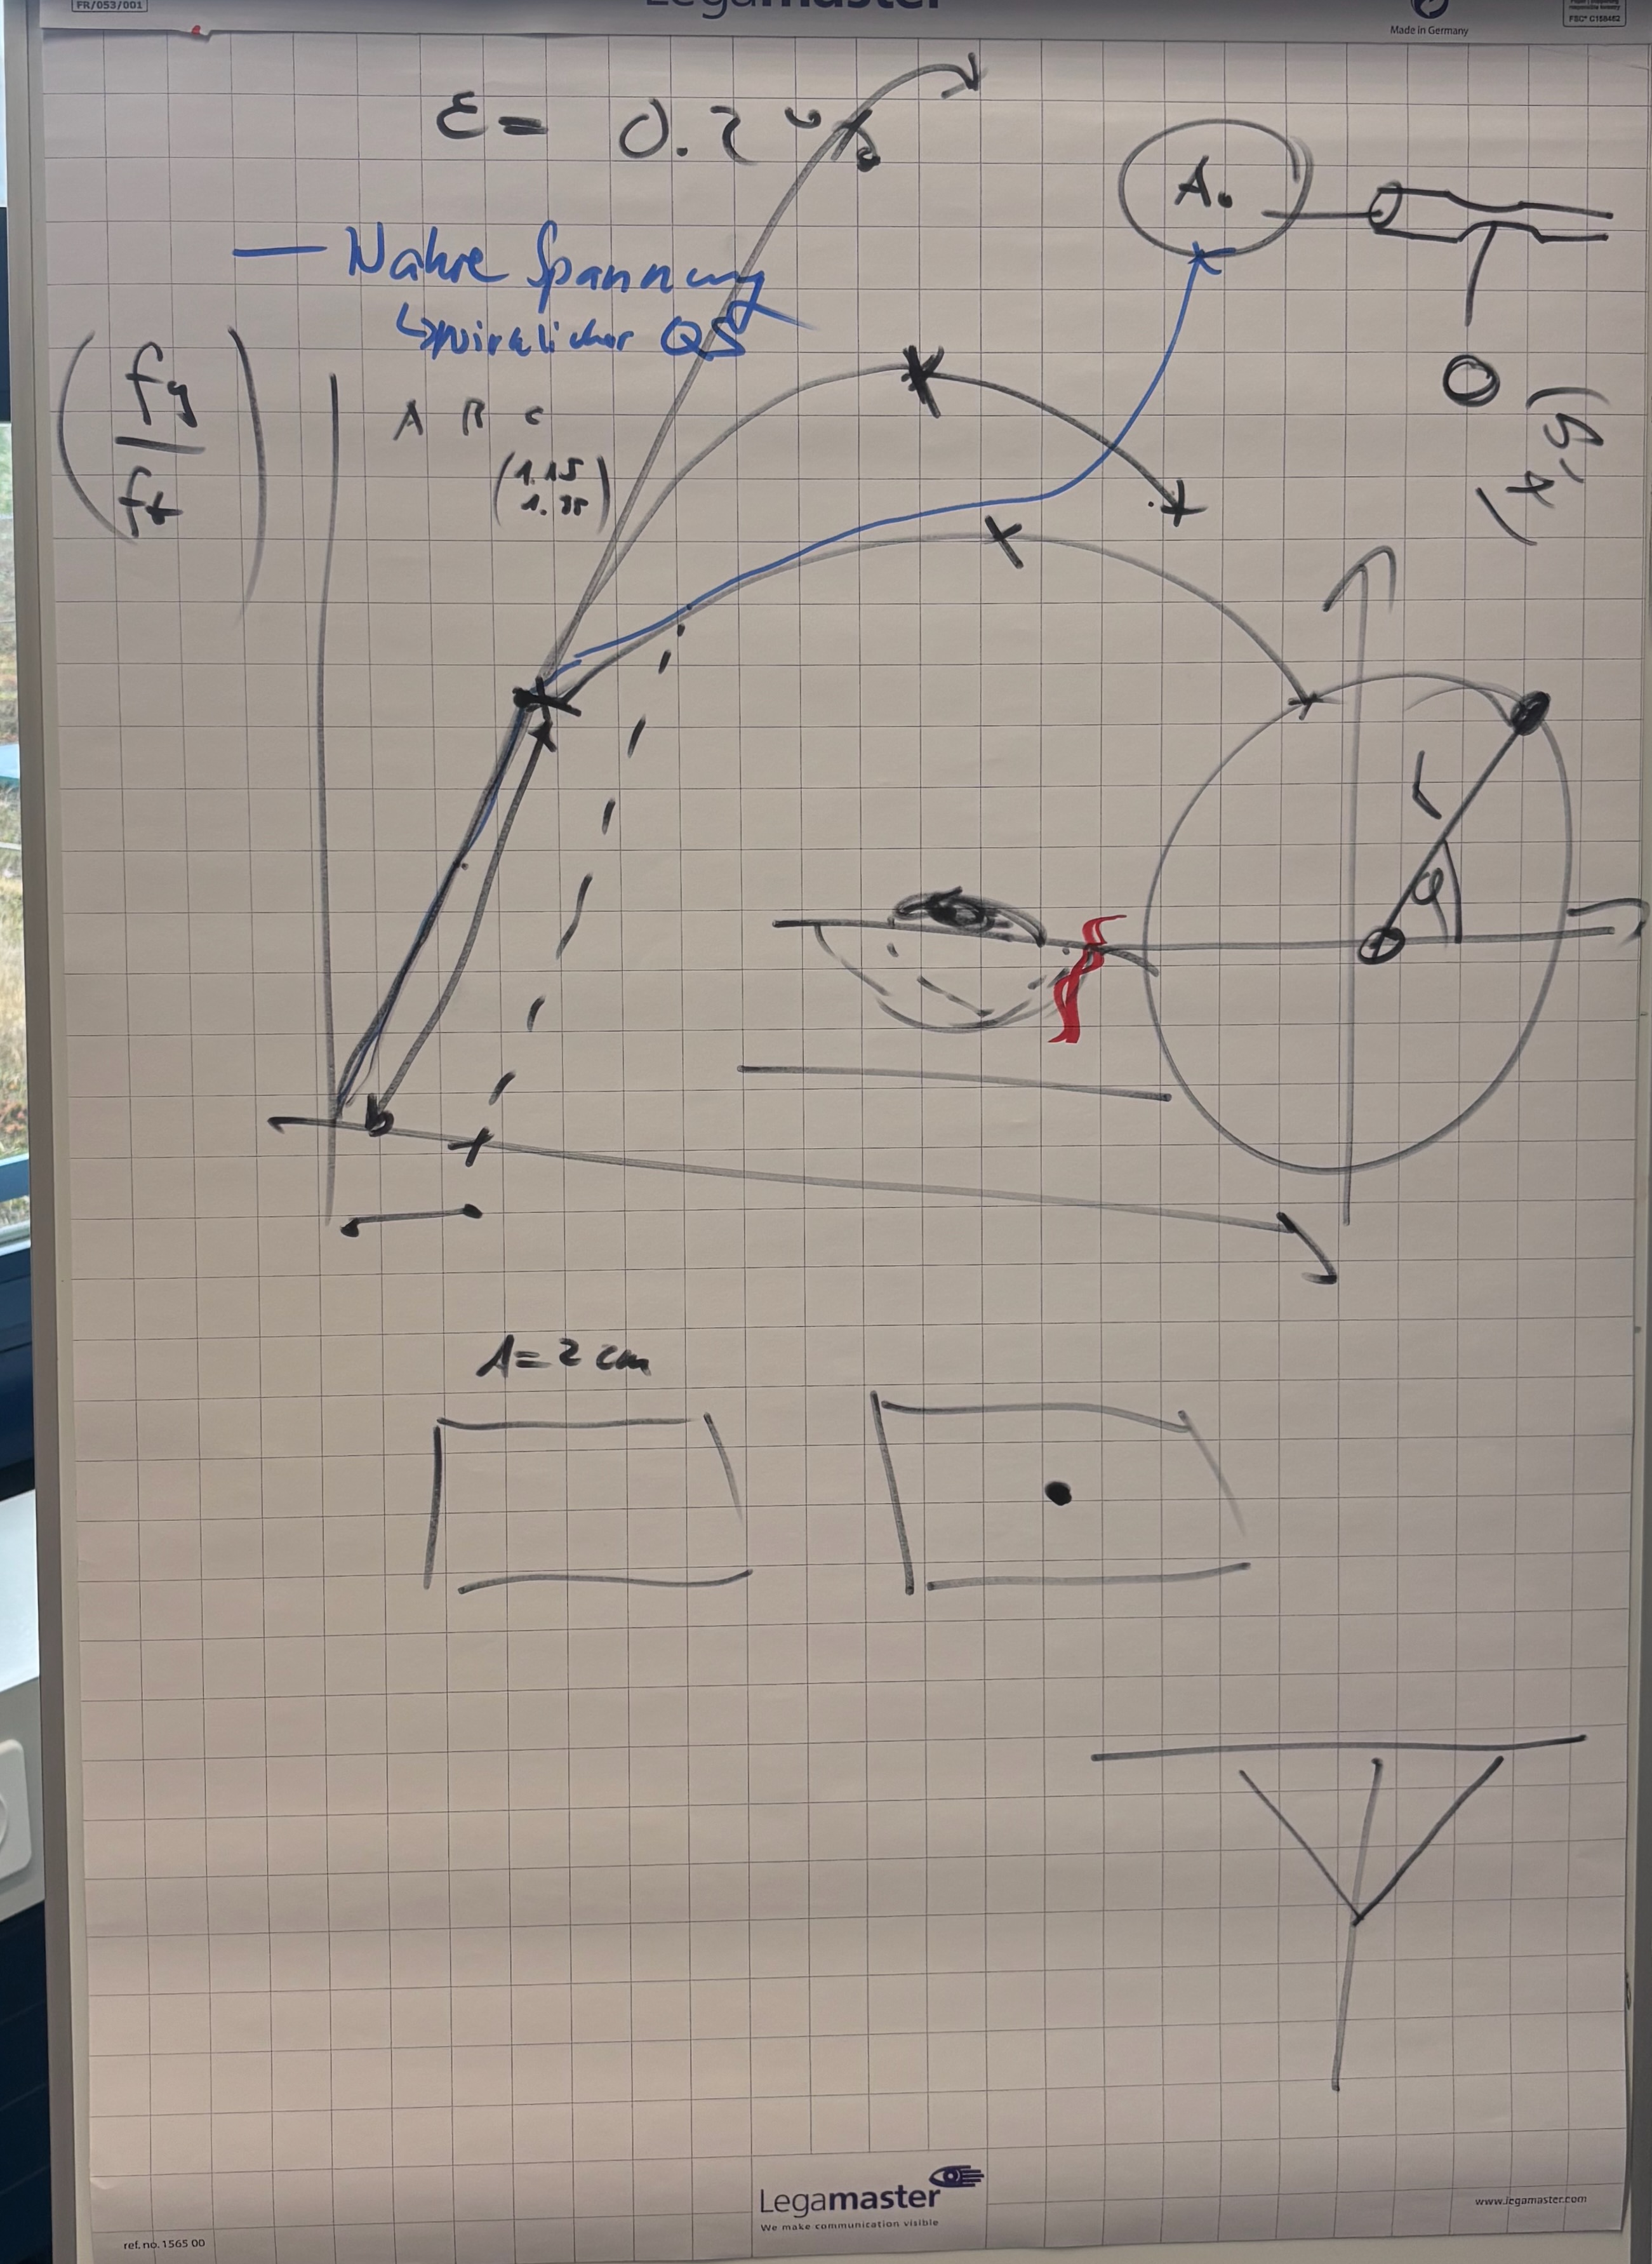 FR/053/001
Legamaster
Made in Germany
FSC® C158462
ε = 0.2 %
A₀
Wahre Spannung
↳ wirklicher QS
fy
ft
A B C
(1.15
1.35)
r
φ
1 = 2 cm
Legamaster
We make communication visible
www.legamaster.com
ref. no. 1565 00